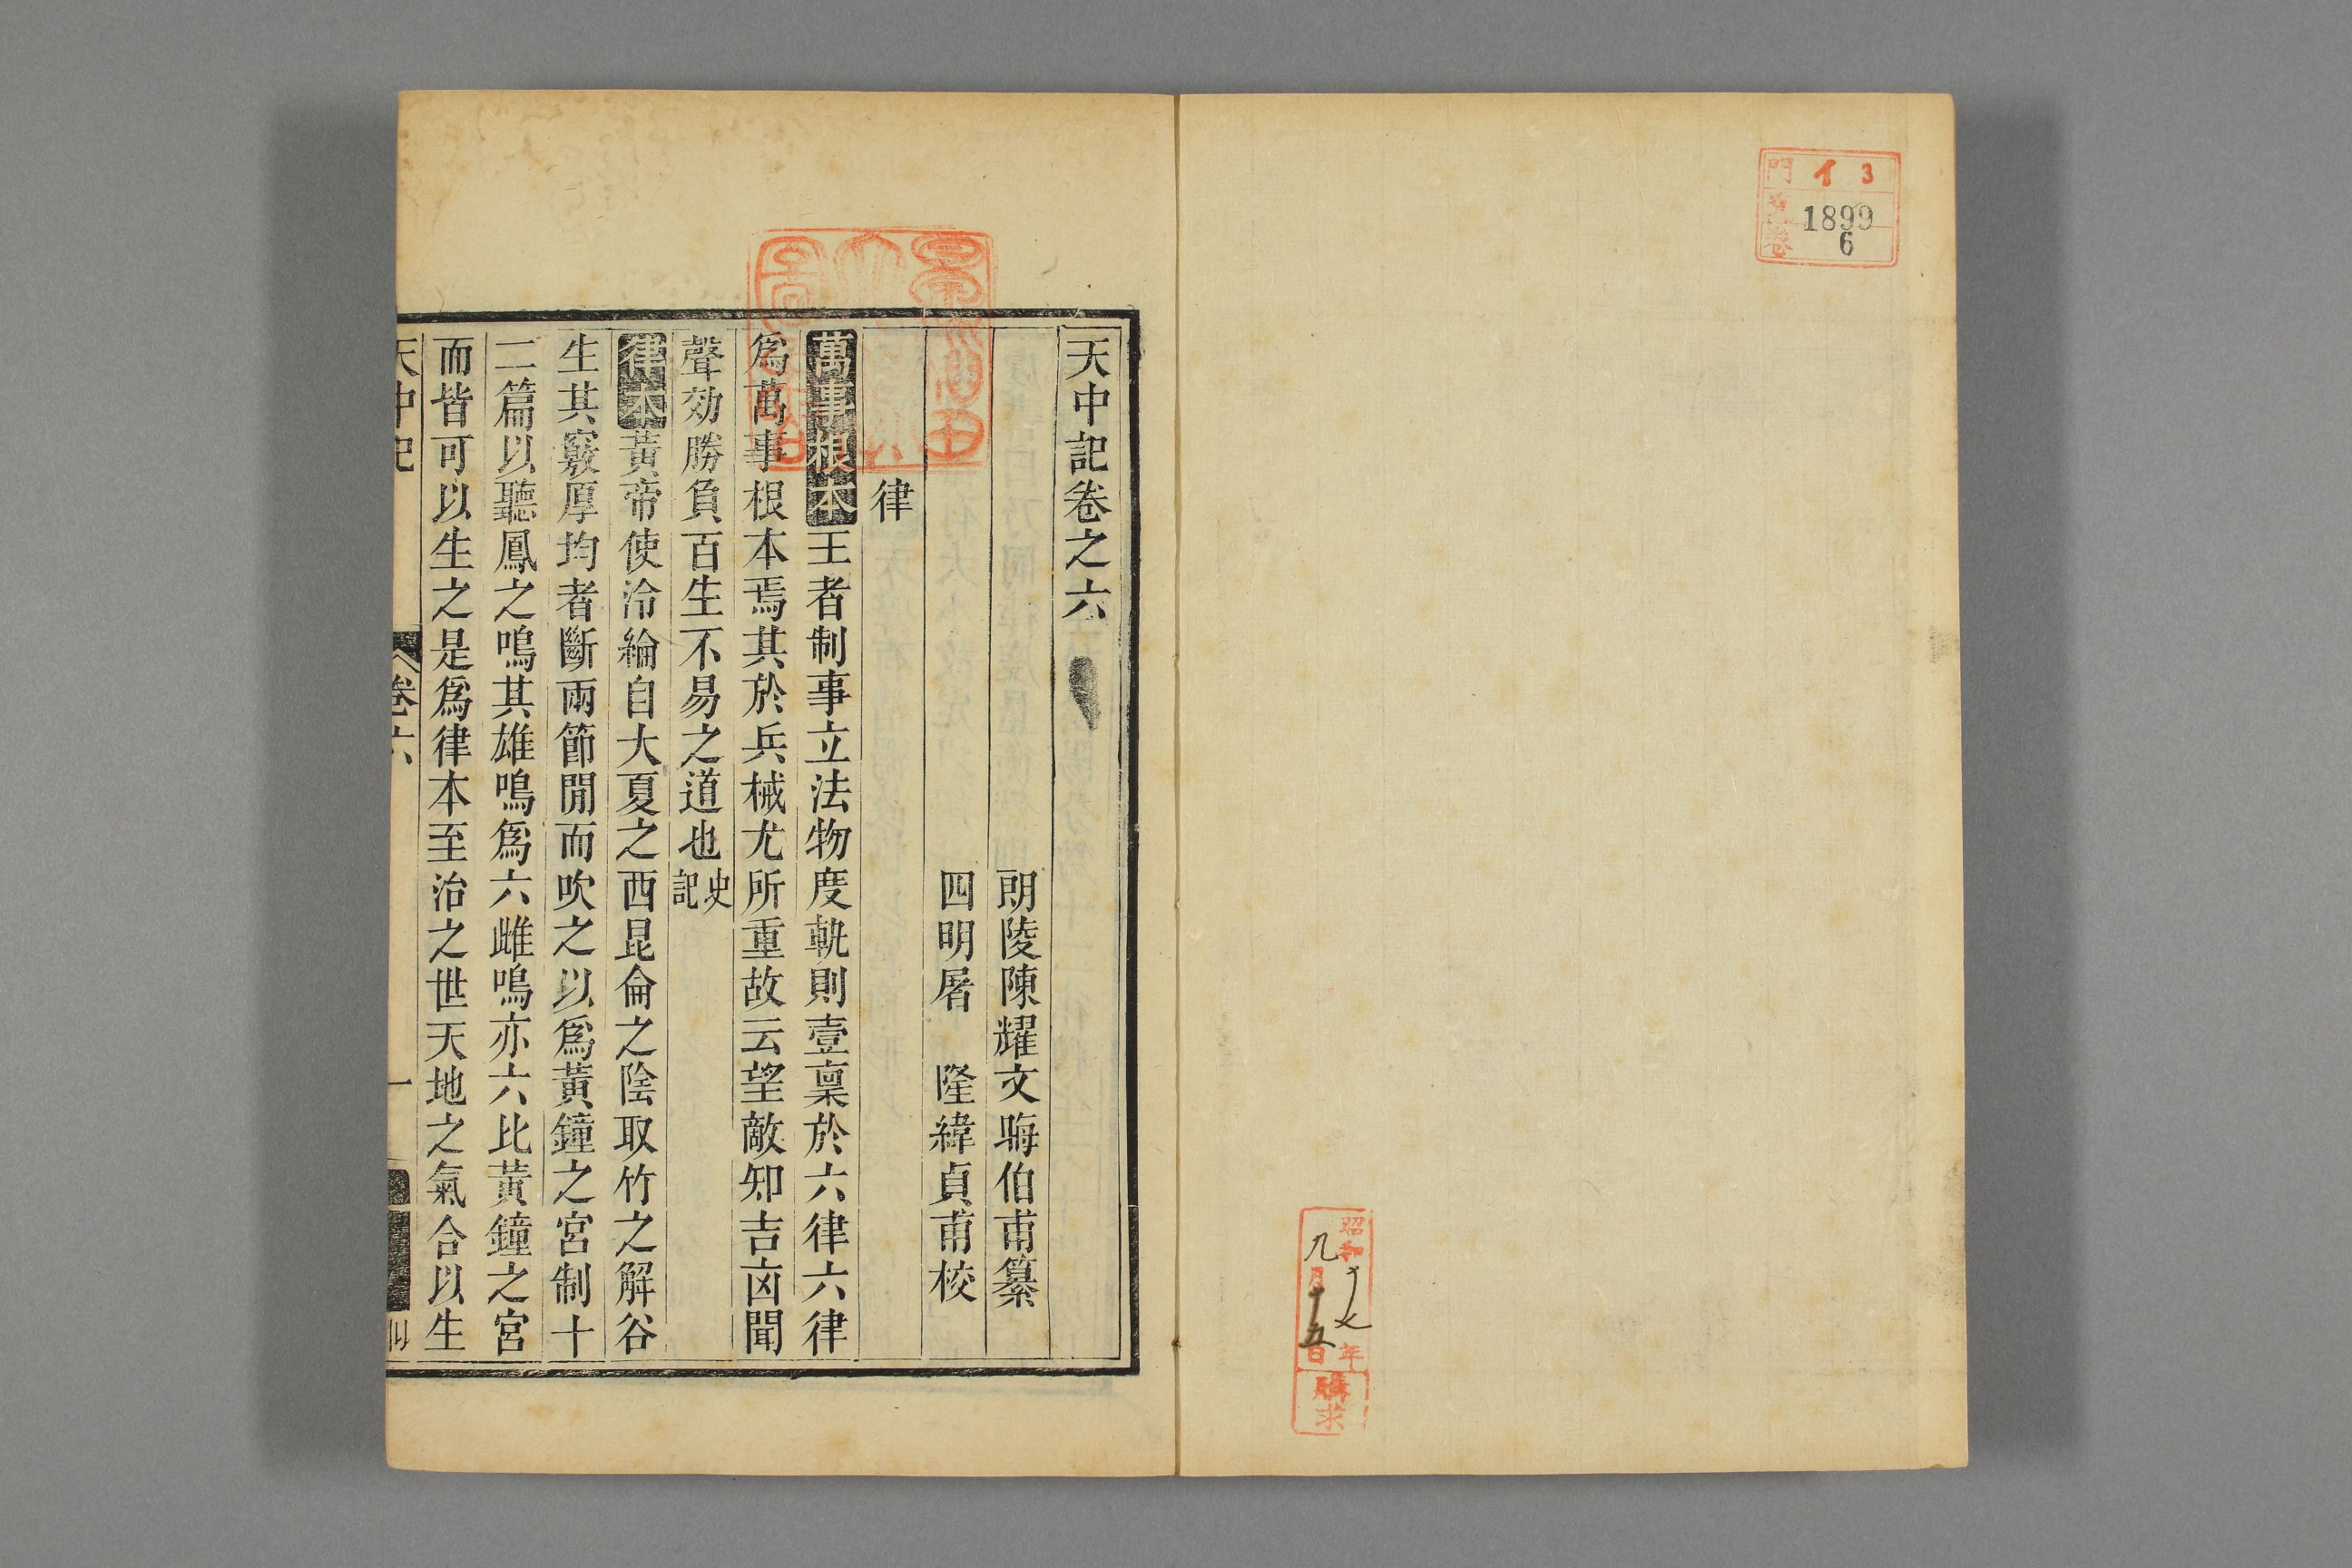 門 イ 3
號 1899
卷 6
昭和十七年
九月十五日
購求
天中記卷之六
朗陵陳耀文晦伯甫纂
四明屠 隆緯貞甫校
律
萬事根本王者制事立法物度軌則壹稟於六律六律
爲萬事根本焉其於兵械尤所重故云望敵知吉凶聞
聲効勝負百生不易之道也史記
律本黃帝使泠綸自大夏之西昆侖之陰取竹之解谷
生其竅厚均者斷兩節閒而吹之以爲黃鐘之宮制十
二篇以聽鳳之鳴其雄鳴爲六雌鳴亦六比黃鐘之宮
而皆可以生之是爲律本至治之世天地之氣合以生
天中記
卷六
一